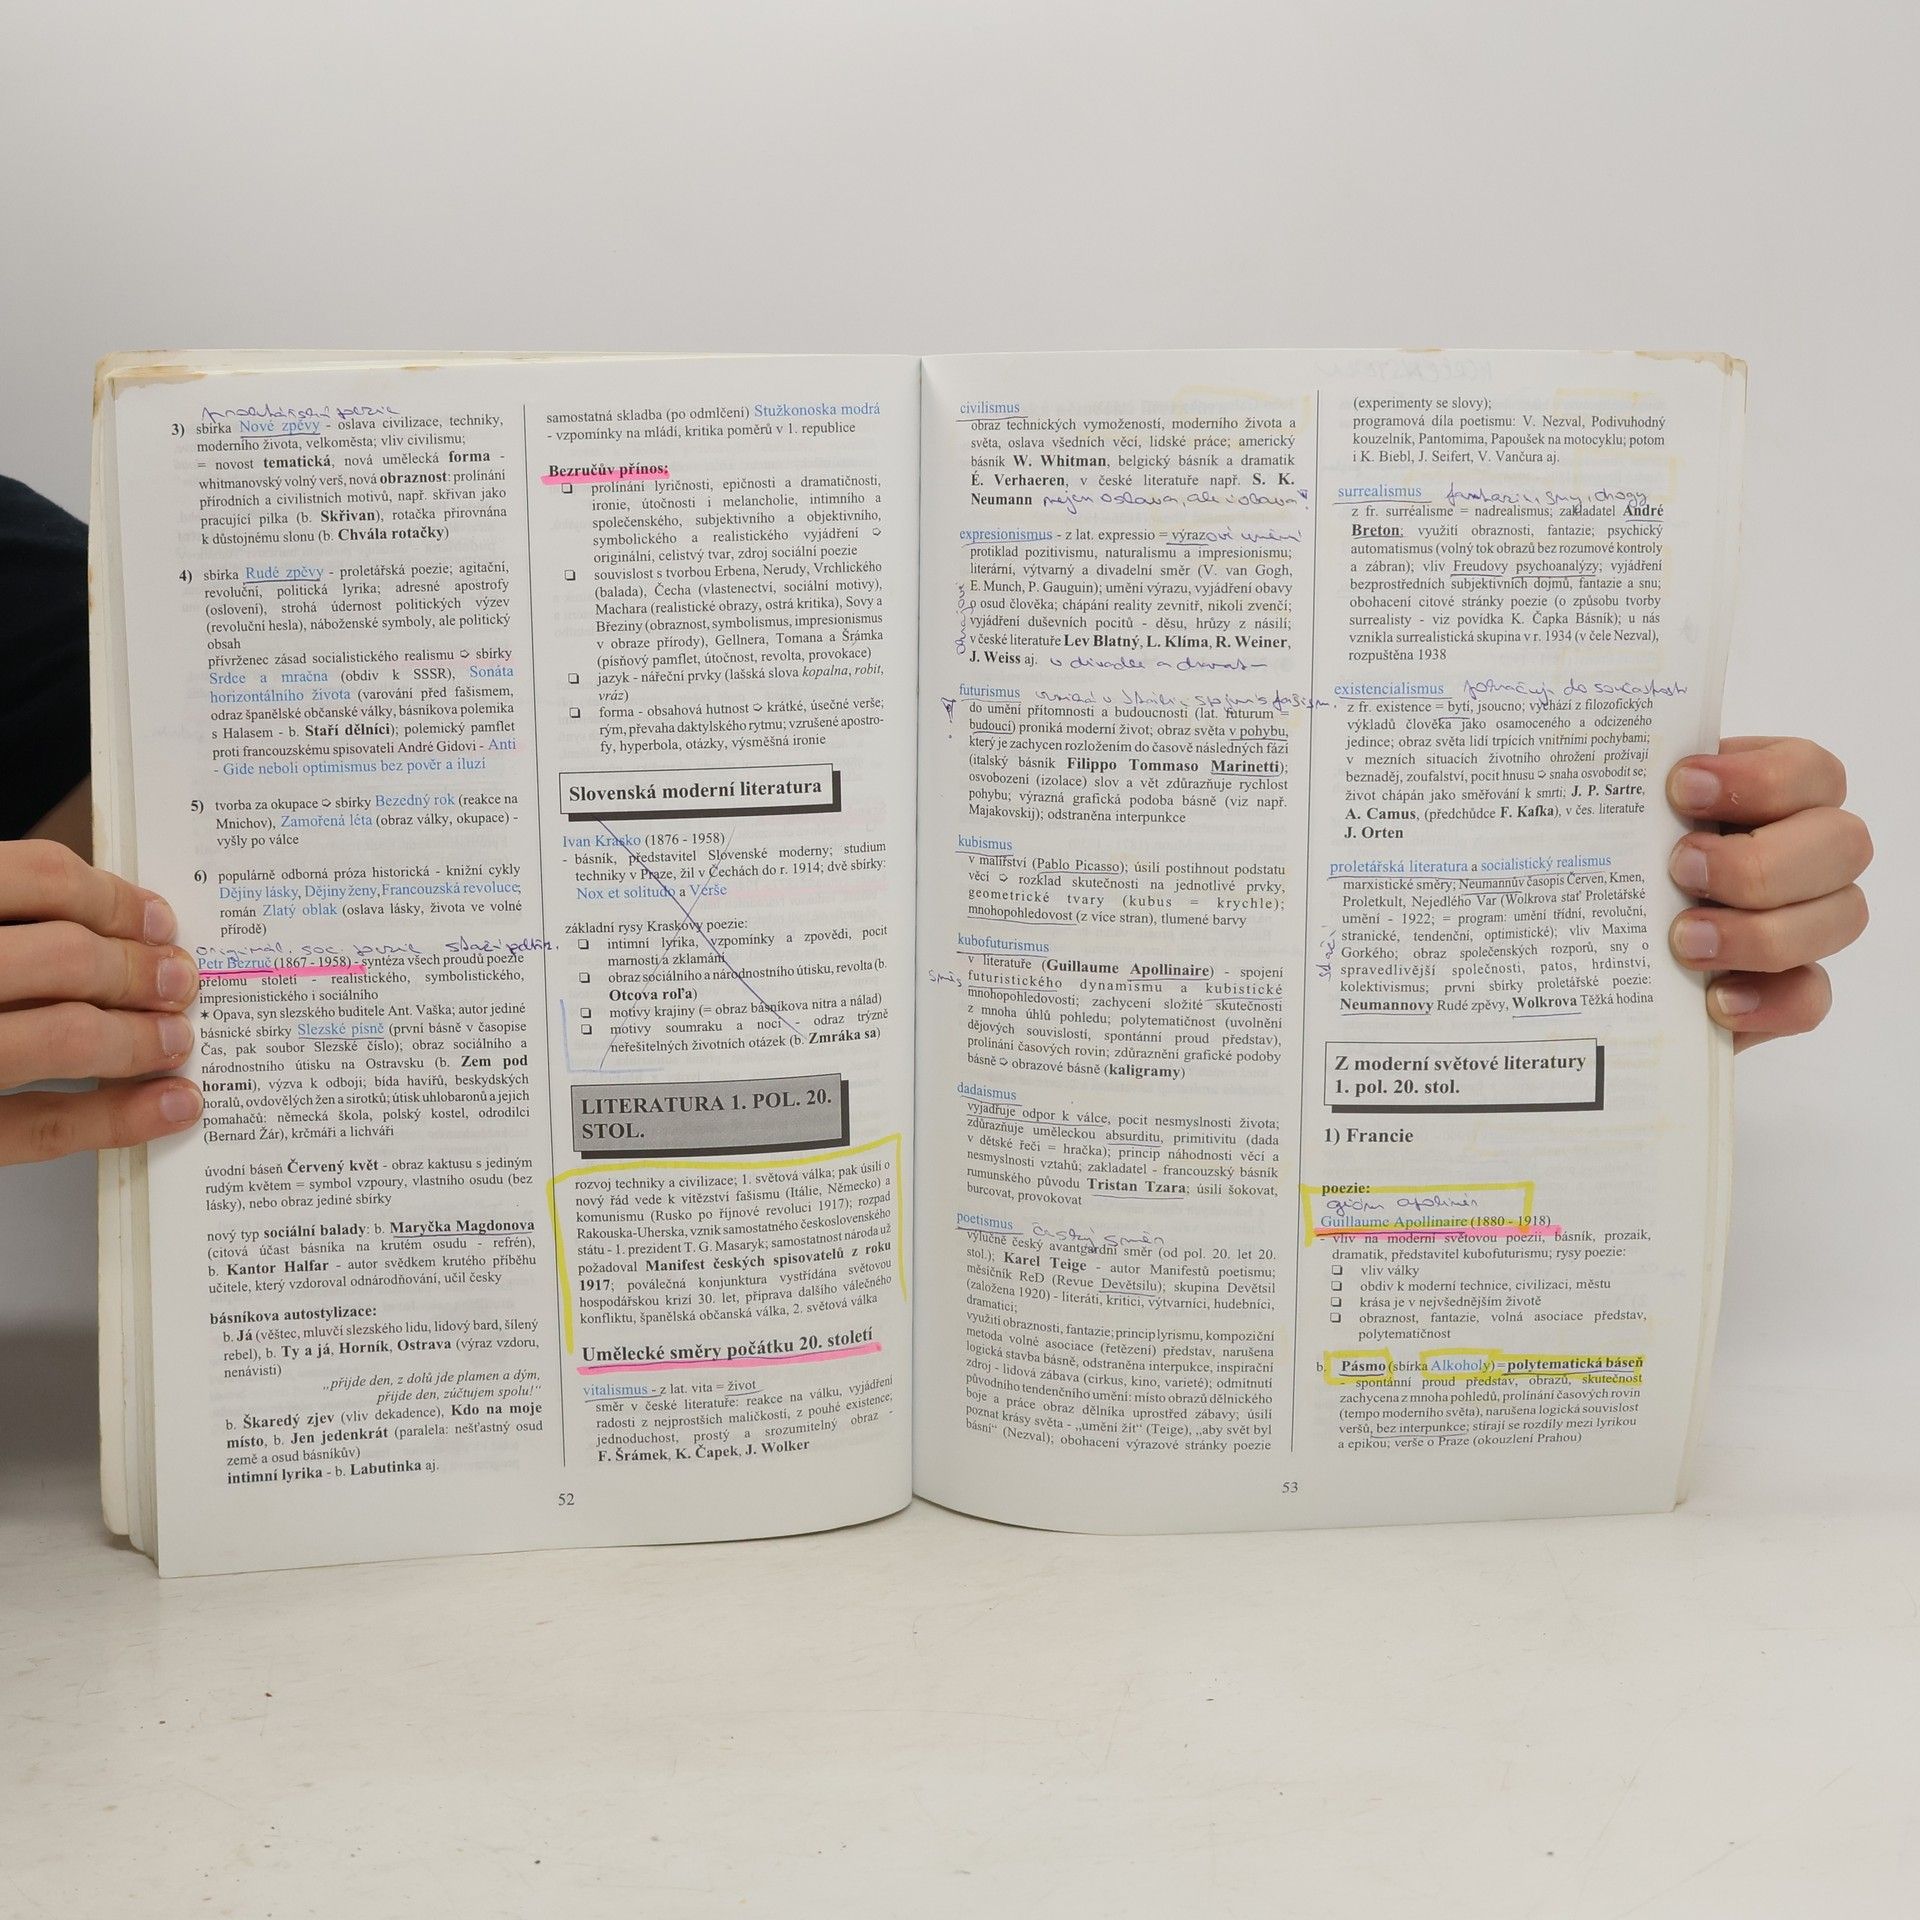 proletářská poezie
3) sbírka Nové zpěvy - oslava civilizace, techniky,
moderního života, velkoměsta; vliv civilismu;
= novost tematická, nová umělecká forma -
whitmanovský volný verš, nová obraznost: prolínání
přírodních a civilistních motivů, např. skřivan jako
pracující pilka (b. Skřivan), rotačka přirovnána
k důstojnému slonu (b. Chvála rotačky)
4) sbírka Rudé zpěvy - proletářská poezie; agitační,
revoluční, politická lyrika; adresné apostrofy
(oslovení), strohá údernost politických výzev
(revoluční hesla), náboženské symboly, ale politický
obsah
přívrženec zásad socialistického realismu ➩ sbírky
Srdce a mračna (obdiv k SSSR), Sonáta
horizontálního života (varování před fašismem,
odraz španělské občanské války, básníkova polemika
s Halasem - b. Staří dělníci); polemický pamflet
proti francouzskému spisovateli André Gidovi - Anti
- Gide neboli optimismus bez pověr a iluzí
5) tvorba za okupace ➩ sbírky Bezedný rok (reakce na
Mnichov), Zamořená léta (obraz války, okupace) -
vyšly po válce
6) populárně odborná próza historická - knižní cykly
Dějiny lásky, Dějiny ženy, Francouzská revoluce;
román Zlatý oblak (oslava lásky, života ve volné
přírodě)
originál. soc. poezie
Petr Bezruč (1867 - 1958) - syntéza všech proudů poezie
přelomu století - realistického, symbolistického,
impresionistického i sociálního
✶ Opava, syn slezského buditele Ant. Vaška; autor jediné
básnické sbírky Slezské písně (první básně v časopise
Čas, pak soubor Slezské číslo); obraz sociálního a
národnostního útisku na Ostravsku (b. Zem pod
horami), výzva k odboji; bída havířů, beskydských
horalů, ovdovělých žen a sirotků; útisk uhlobaronů a jejich
pomahačů: německá škola, polský kostel, odrodilci
(Bernard Žár), krčmáři a lichváři
úvodní báseň Červený květ - obraz kaktusu s jediným
rudým květem = symbol vzpoury, vlastního osudu (bez
lásky), nebo obraz jediné sbírky
nový typ sociální balady: b. Maryčka Magdonova
(citová účast básníka na krutém osudu - refrén),
b. Kantor Halfar - autor svědkem krutého příběhu
učitele, který vzdoroval odnárodňování, učil česky
básníkova autostylizace:
b. Já (věštec, mluvčí slezského lidu, lidový bard, šílený
rebel), b. Ty a já, Horník, Ostrava (výraz vzdoru,
nenávisti)
„přijde den, z dolů jde plamen a dým,
přijde den, zúčtujem spolu!“
b. Škaredý zjev (vliv dekadence), Kdo na moje
místo, b. Jen jedenkrát (paralela: nešťastný osud
země a osud básníkův)
intimní lyrika - b. Labutinka aj.
samostatná skladba (po odmlčení) Stužkonoska modrá
- vzpomínky na mládí, kritika poměrů v 1. republice
Bezručův přínos:
❏ prolínání lyričnosti, epičnosti a dramatičnosti,
ironie, útočnosti i melancholie, intimního a
společenského, subjektivního a objektivního,
symbolického a realistického vyjádření ➩
originální, celistvý tvar, zdroj sociální poezie
❏ souvislost s tvorbou Erbena, Nerudy, Vrchlického
(balada), Čecha (vlastenectví, sociální motivy),
Machara (realistické obrazy, ostrá kritika), Sovy a
Březiny (obraznost, symbolismus, impresionismus
v obraze přírody), Gellnera, Tomana a Šrámka
(písňový pamflet, útočnost, revolta, provokace)
❏ jazyk - nářeční prvky (lašská slova kopalna, robit,
vráz)
❏ forma - obsahová hutnost ➩ krátké, úsečné verše;
rým, převaha daktylského rytmu; vzrušené apostro-
fy, hyperbola, otázky, výsměšná ironie
Slovenská moderní literatura
Ivan Krasko (1876 - 1958)
- básník, představitel Slovenské moderny; studium
techniky v Praze, žil v Čechách do r. 1914; dvě sbírky:
Nox et solitudo a Verše
základní rysy Kraskovy poezie:
❏ intimní lyrika, vzpomínky a zpovědi, pocit
marnosti a zklamání
❏ obraz sociálního a národnostního útisku, revolta (b.
Otcova roľa)
❏ motivy krajiny (= obraz básníkova nitra a nálad)
❏ motivy soumraku a noci - odraz trýzně
neřešitelných životních otázek (b. Zmráka sa)
LITERATURA 1. POL. 20.
STOL.
rozvoj techniky a civilizace; 1. světová válka; pak úsilí o
nový řád vede k vítězství fašismu (Itálie, Německo) a
komunismu (Rusko po říjnové revoluci 1917); rozpad
Rakouska-Uherska, vznik samostatného československého
státu - 1. prezident T. G. Masaryk; samostatnost národa už
požadoval Manifest českých spisovatelů z roku
1917; poválečná konjunktura vystřídána světovou
hospodářskou krizí 30. let, příprava dalšího válečného
konfliktu, španělská občanská válka, 2. světová válka
Umělecké směry počátku 20. století
vitalismus - z lat. vita = život
směr v české literatuře: reakce na válku, vyjádření
radosti z nejprostších maličkostí, z pouhé existence,
jednoduchost, prostý a srozumitelný obraz -
F. Šrámek, K. Čapek, J. Wolker
52
civilismus
obraz technických vymožeností, moderního života a
světa, oslava všedních věcí, lidské práce; americký
básník W. Whitman, belgický básník a dramatik
É. Verhaeren, v české literatuře např. S. K.
Neumann nejen oslava, ale i obava
expresionismus - z lat. expressio = výraz ové umění
protiklad pozitivismu, naturalismu a impresionismu;
literární, výtvarný a divadelní směr (V. van Gogh,
E. Munch, P. Gauguin); umění výrazu, vyjádření obavy
o osud člověka; chápání reality zevnitř, nikoli zvenčí;
vyjádření duševních pocitů - děsu, hrůzy z násilí;
v české literatuře Lev Blatný, L. Klíma, R. Weiner,
J. Weiss aj. v divadle a dramat
futurismus vzniká v Itálii, spojen s fašism.
do umění přítomnosti a budoucnosti (lat. futurum =
budoucí) proniká moderní život; obraz světa v pohybu,
který je zachycen rozložením do časově následných fází
(italský básník Filippo Tommaso Marinetti);
osvobození (izolace) slov a vět zdůrazňuje rychlost
pohybu; výrazná grafická podoba básně (viz např.
Majakovskij); odstraněna interpunkce
kubismus
v malířství (Pablo Picasso); úsilí postihnout podstatu
věci ➩ rozklad skutečnosti na jednotlivé prvky,
geometrické tvary (kubus = krychle);
mnohopohledovost (z více stran), tlumené barvy
kubofuturismus
v literatuře (Guillaume Apollinaire) - spojení
směs futuristického dynamismu a kubistické
mnohopohledovosti; zachycení složité skutečnosti
z mnoha úhlů pohledu; polytematičnost (uvolnění
dějových souvislostí, spontánní proud představ),
prolínání časových rovin; zdůraznění grafické podoby
básně ➩ obrazové básně (kaligramy)
dadaismus
vyjadřuje odpor k válce, pocit nesmyslnosti života;
zdůrazňuje uměleckou absurditu, primitivitu (dada
v dětské řeči = hračka); princip náhodnosti věcí a
nesmyslnosti vztahů; zakladatel - francouzský básník
rumunského původu Tristan Tzara; úsilí šokovat,
burcovat, provokovat
poetismus český směr
výlučně český avantgardní směr (od pol. 20. let 20.
stol.); Karel Teige - autor Manifestů poetismu;
měsíčník ReD (Revue Devětsilu); skupina Devětsil
(založena 1920) - literáti, kritici, výtvarníci, hudebníci,
dramatici;
využití obraznosti, fantazie; princip lyrismu, kompoziční
metoda volné asociace (řetězení) představ, narušena
logická stavba básně, odstraněna interpukce, inspirační
zdroj - lidová zábava (cirkus, kino, varieté); odmítnutí
původního tendenčního umění: místo obrazů dělnického
boje a práce obraz dělníka uprostřed zábavy; úsilí
poznat krásy světa - „umění žít“ (Teige), „aby svět byl
básní“ (Nezval); obohacení výrazové stránky poezie
(experimenty se slovy);
programová díla poetismu: V. Nezval, Podivuhodný
kouzelník, Pantomima, Papoušek na motocyklu; potom
i K. Biebl, J. Seifert, V. Vančura aj.
surrealismus fantazie, sny, drogy
z fr. surréalisme = nadrealismus; zakladatel André
Breton; využití obraznosti, fantazie; psychický
automatismus (volný tok obrazů bez rozumové kontroly
a zábran); vliv Freudovy psychoanalýzy; vyjádření
bezprostředních subjektivních dojmů, fantazie a snu;
obohacení citové stránky poezie (o způsobu tvorby
surrealisty - viz povídka K. Čapka Básník); u nás
vznikla surrealistická skupina v r. 1934 (v čele Nezval),
rozpuštěna 1938
existencialismus pokračuj. do současnosti
z fr. existence = bytí, jsoucno; vychází z filozofických
výkladů člověka jako osamoceného a odcizeného
jedince; obraz světa lidí trpících vnitřními pochybami;
v mezních situacích životního ohrožení prožívají
beznaděj, zoufalství, pocit hnusu ➩ snaha osvobodit se;
život chápán jako směřování k smrti; J. P. Sartre,
A. Camus, (předchůdce F. Kafka), v čes. literatuře
J. Orten
proletářská literatura a socialistický realismus
marxistické směry; Neumannův časopis Červen, Kmen,
Proletkult, Nejedlého Var (Wolkrova stať Proletářské
umění - 1922; = program: umění třídní, revoluční,
stranické, tendenční, optimistické); vliv Maxima
Gorkého; obraz společenských rozporů, sny o
spravedlivější společnosti, patos, hrdinství,
kolektivismus; první sbírky proletářské poezie:
Neumannovy Rudé zpěvy, Wolkrova Těžká hodina
Z moderní světové literatury
1. pol. 20. stol.
1) Francie
poezie:
Guillaume Apollinaire (1880 - 1918)
- vliv na moderní světovou poezii, básník, prozaik,
dramatik, představitel kubofuturismu; rysy poezie:
❏ vliv války
❏ obdiv k moderní technice, civilizaci, městu
❏ krása je v nejvšednějším životě
❏ obraznost, fantazie, volná asociace představ,
polytematičnost
b. Pásmo (sbírka Alkoholy) = polytematická báseň
- spontánní proud představ, obrazů, skutečnost
zachycena z mnoha pohledů, prolínání časových rovin
(tempo moderního světa), narušena logická souvislost
veršů, bez interpunkce; stírají se rozdíly mezi lyrikou
a epikou; verše o Praze (okouzlení Prahou)
53